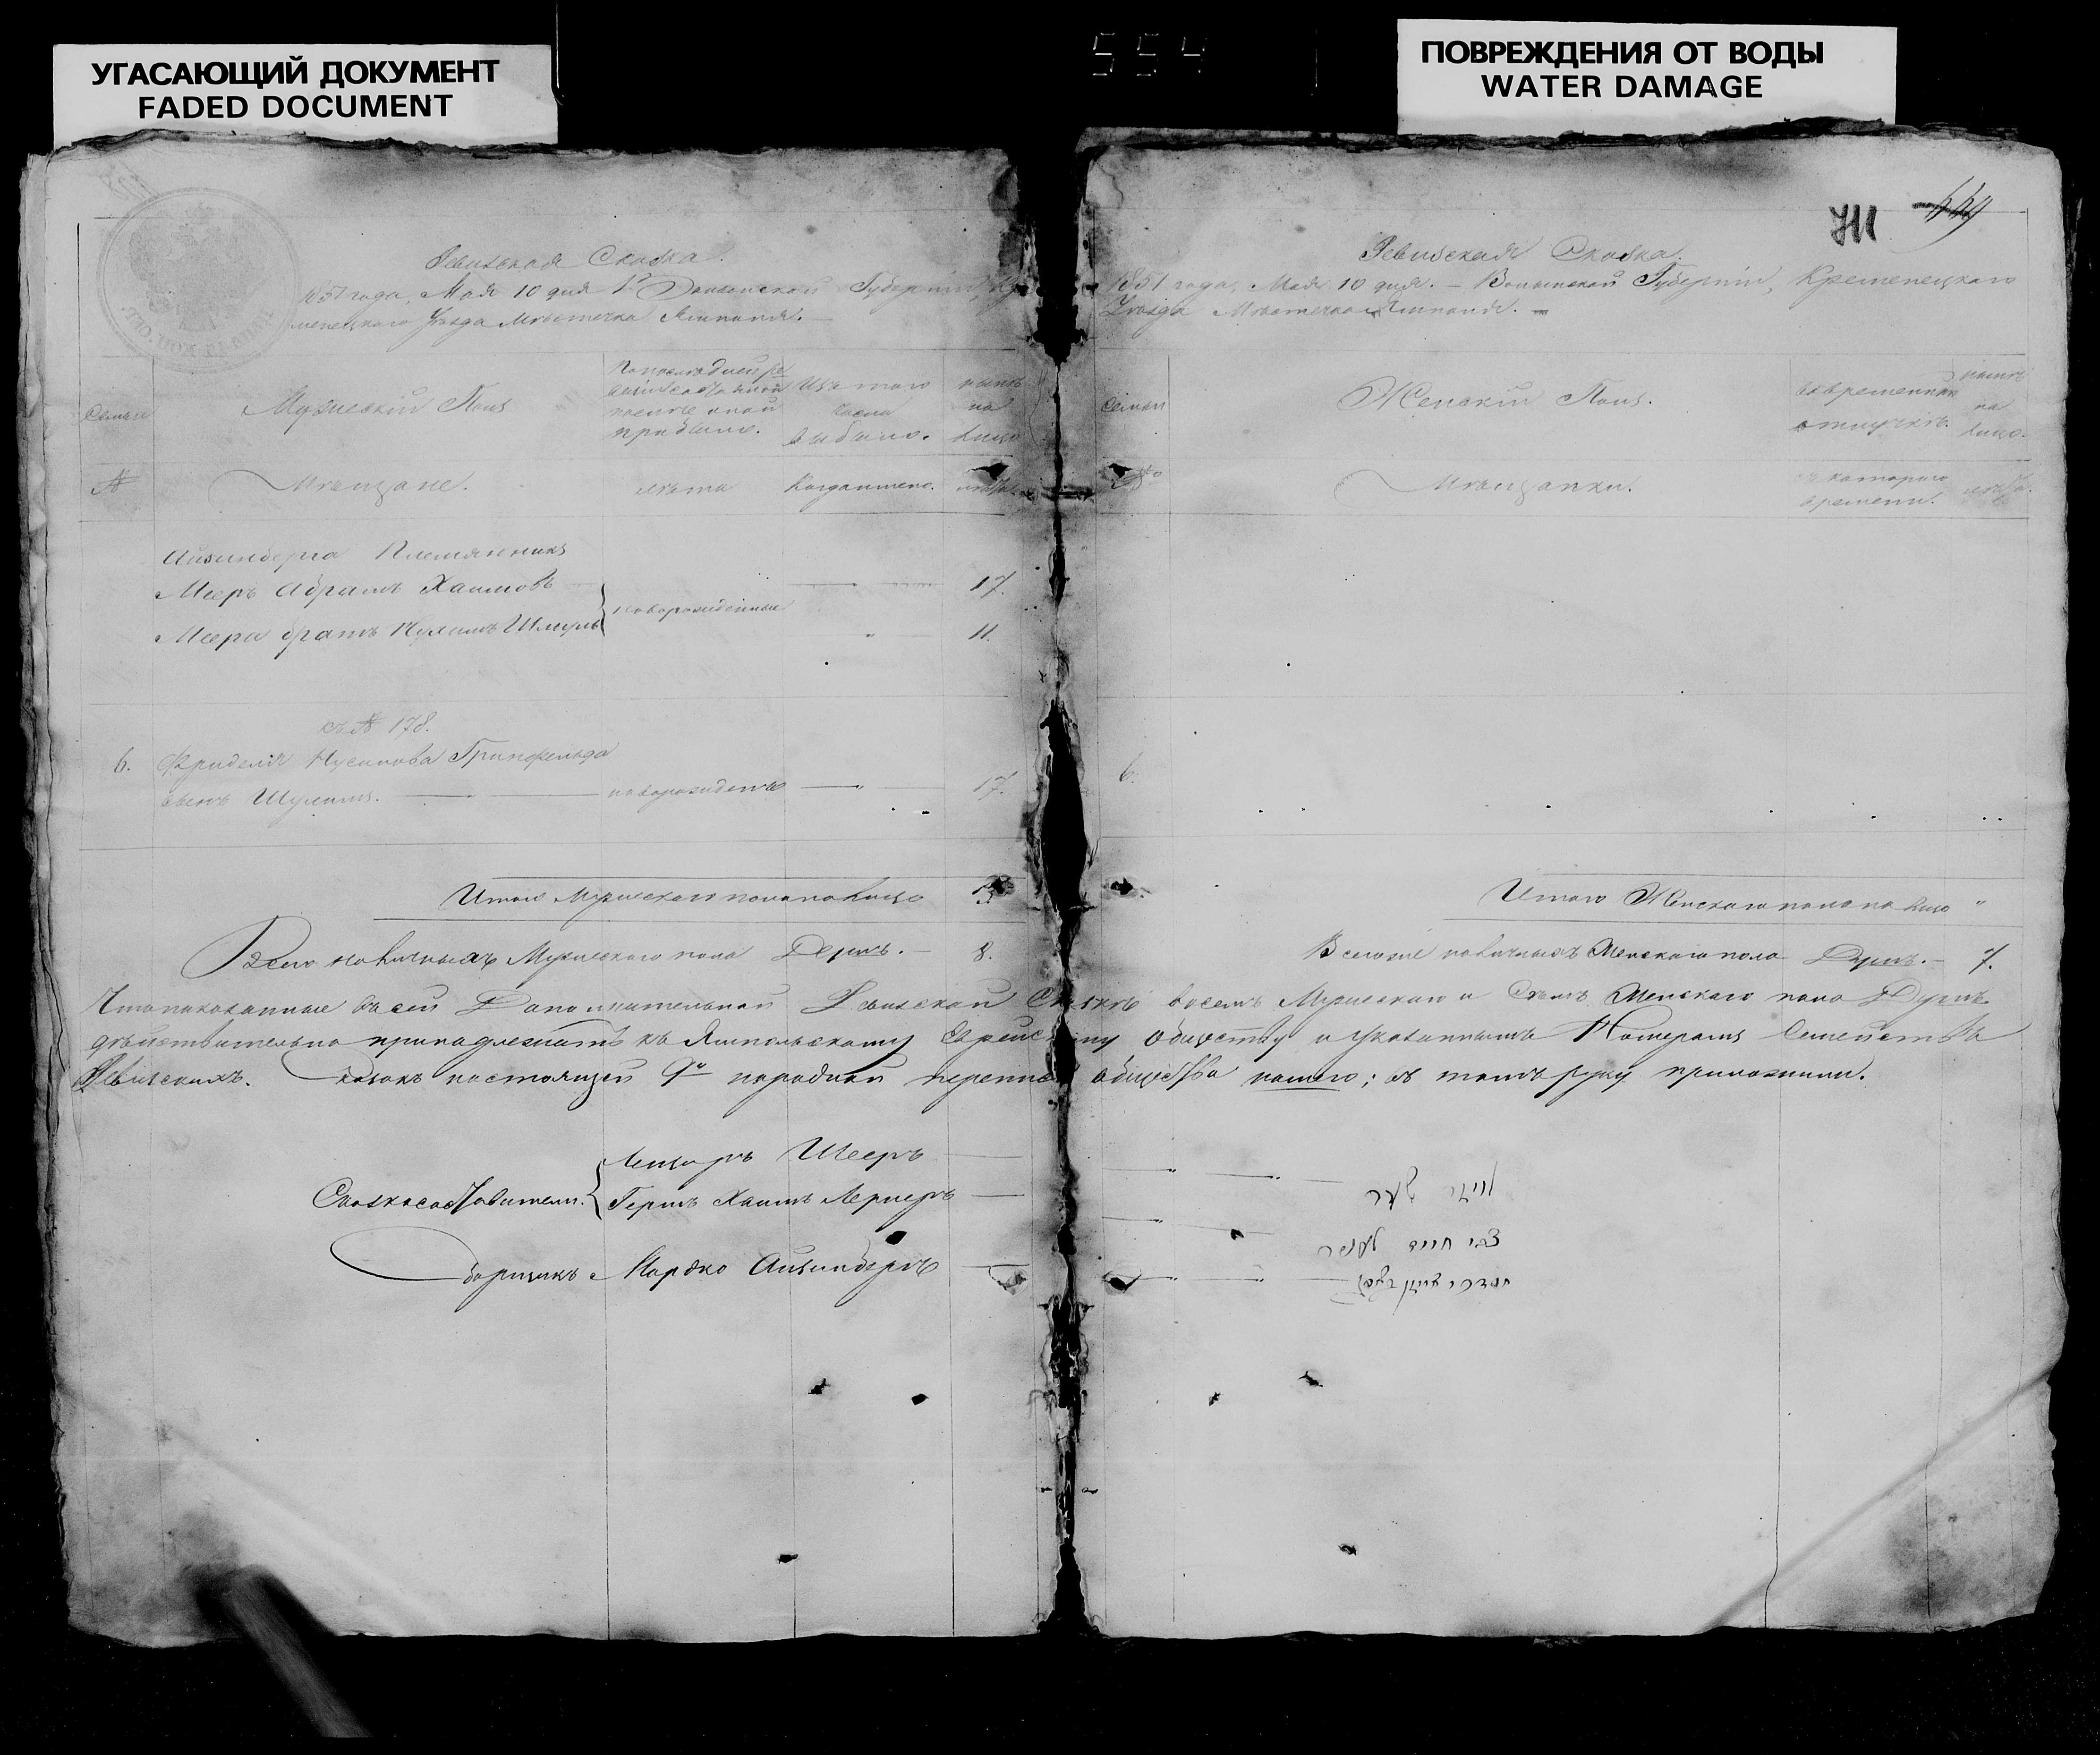 УГАСАЮЩИЙ ДОКУМЕНТ
FADED DOCUMENT
554
ПОВРЕЖДЕНИЯ ОТ ВОДЫ
WATER DAMAGE
Ревизская Сказка.
1851 года, Мая 10 дня Волынской Губерніи, Кре
менецкаго Уѣзда Мѣстечка Ямполя. —
Семьи
Мужескій Полъ
По последней ре
визіи состояло и
после оной
прибыло.
Изъ того
числа
выбыло.
нынѣ
на
лицо
№
Мѣщане.
лѣта
Когда именно.
лѣта.
Айзинберга Племянникъ
Мееръ Абрамъ Хаимовъ 17.
Меера братъ Нухимъ Шмуль новорожденные 11.
съ № 178.
6. Фриделя Нусинова Гринфельда
сынъ Шулимъ. новорожденъ 17.
Итого Мужескаго пола на лицо 3.
Всего наличныхъ Мужескаго пола Душъ. — 8.
711 449
Ревизская Сказка.
1851 года, Мая 10 дня. — Волынской Губерніи, Кременецкаго
Уѣзда Мѣстечка Ямполя. —
Семьи
Женскій Полъ.
во временной
отлучкѣ.
нынѣ
на
лицо.
№
Мѣщанки.
съ котораго
времени.
лѣта.
6.
Итого Женскаго пола на лицо "
Всего же наличныхъ Женскаго пола Душъ. — 7.
Что показанные въ сей Дополнительной Ревизской Сказкѣ восемъ Мужескаго и Семь Женскаго пола Душъ
дѣйствительно принадлежатъ къ Ямпольскому Еврейскому обществу и указаннымъ Номерамъ Семействъ
Ревизскихъ. Сказокъ настоящей 9й народной переписи общества нашего; въ томъ руку приложили.
Лейзоръ Шееръ
Сказкосоставители. Гершъ Хаимъ Лернеръ
צבי חיים לערנר
Сборщикъ Мордко Айзинбергъ